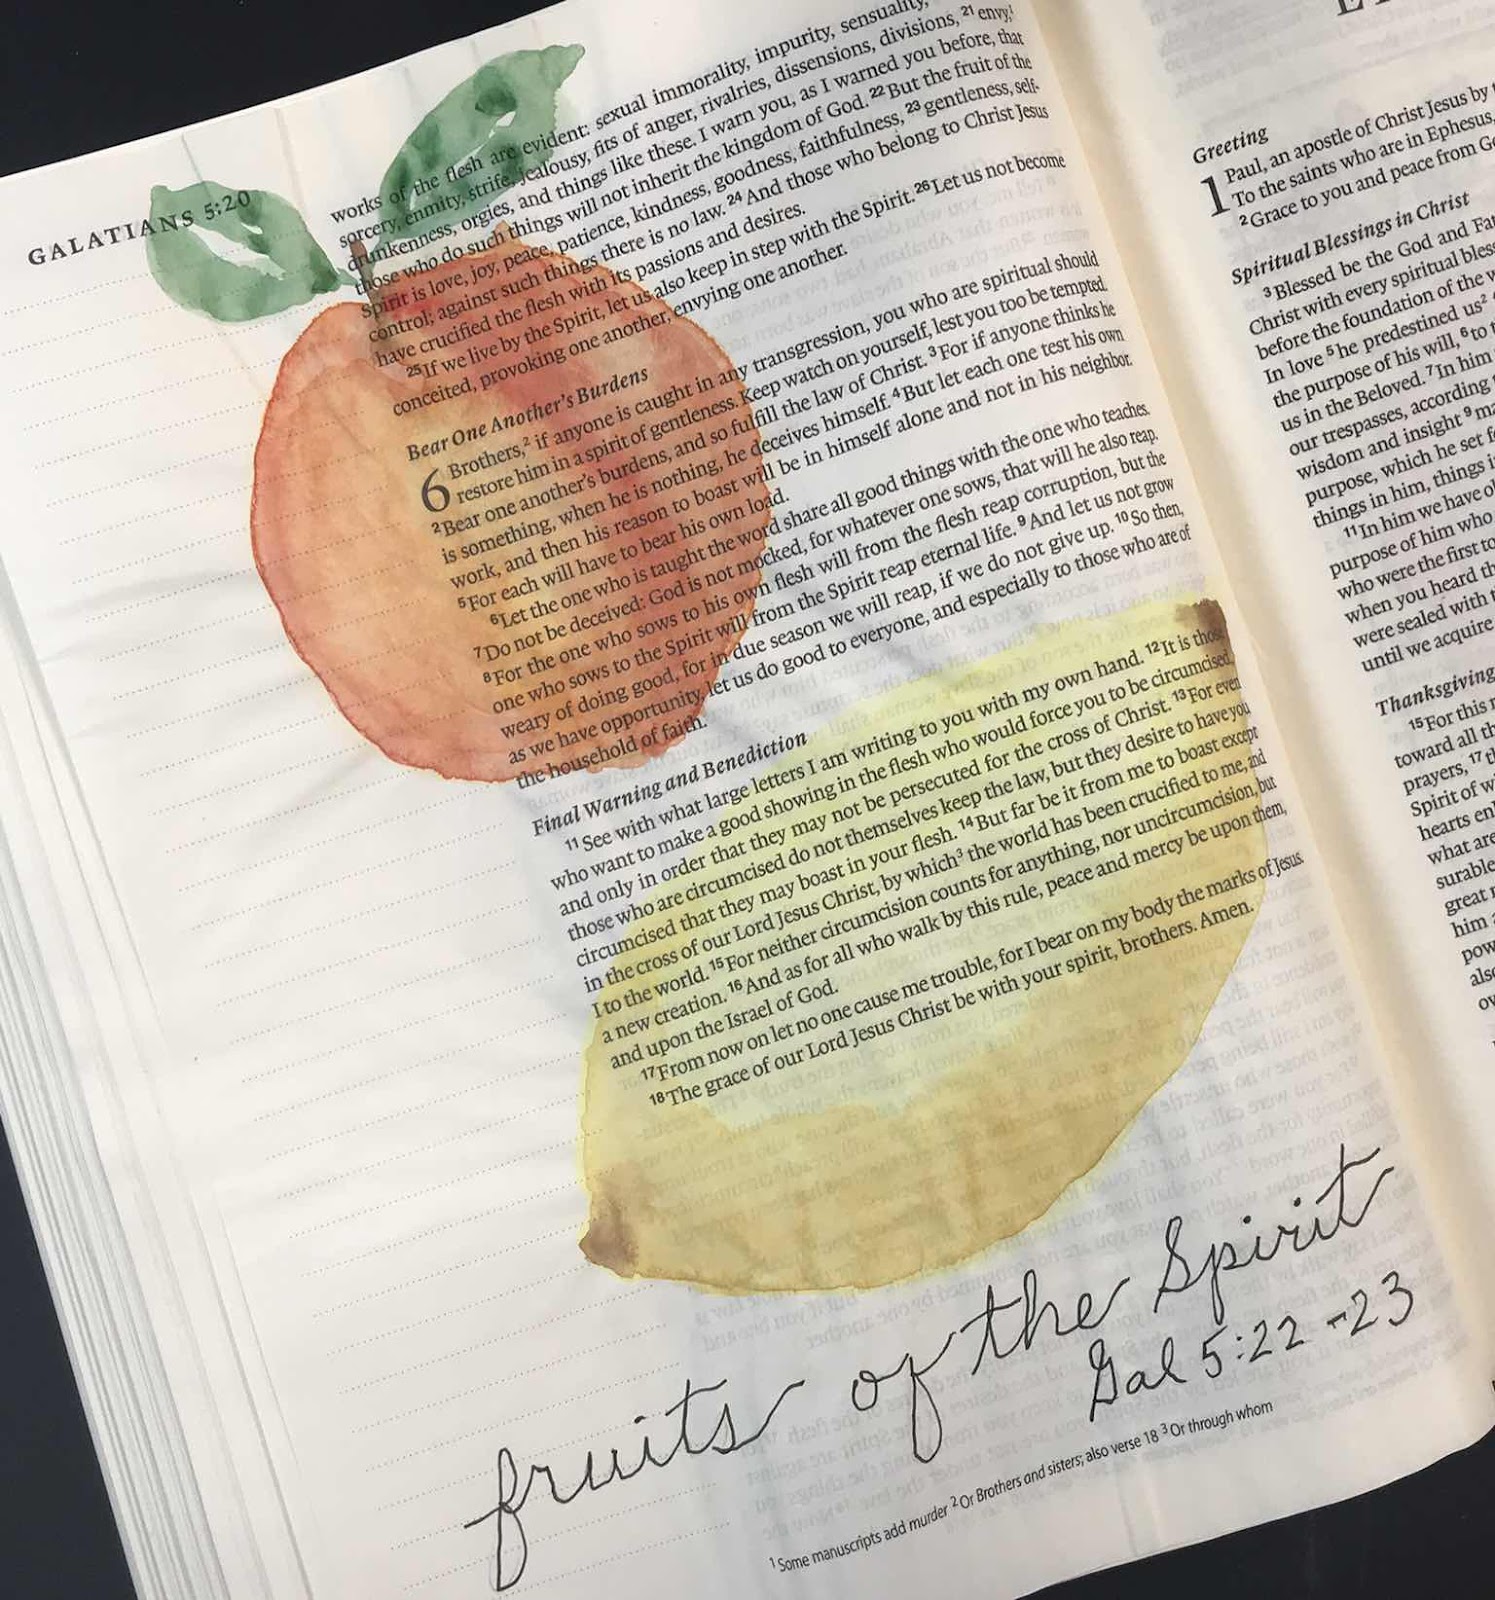 GALATIANS 5:20
works of the flesh are evident: sexual immorality, impurity, sensuality,
sorcery, enmity, strife, jealousy, fits of anger, rivalries, dissensions, divisions, 21 envy,1
drunkenness, orgies, and things like these. I warn you, as I warned you before, that
those who do such things will not inherit the kingdom of God. 22 But the fruit of the
Spirit is love, joy, peace, patience, kindness, goodness, faithfulness, 23 gentleness, self-
control; against such things there is no law. 24 And those who belong to Christ Jesus
have crucified the flesh with its passions and desires.
25 If we live by the Spirit, let us also keep in step with the Spirit. 26 Let us not become
conceited, provoking one another, envying one another.
Bear One Another's Burdens
6 Brothers,2 if anyone is caught in any transgression, you who are spiritual should
restore him in a spirit of gentleness. Keep watch on yourself, lest you too be tempted.
2 Bear one another's burdens, and so fulfill the law of Christ. 3 For if anyone thinks he
is something, when he is nothing, he deceives himself. 4 But let each one test his own
work, and then his reason to boast will be in himself alone and not in his neighbor.
5 For each will have to bear his own load.
6 Let the one who is taught the word share all good things with the one who teaches.
7 Do not be deceived: God is not mocked, for whatever one sows, that will he also reap.
8 For the one who sows to his own flesh will from the flesh reap corruption, but the
one who sows to the Spirit will from the Spirit reap eternal life. 9 And let us not grow
weary of doing good, for in due season we will reap, if we do not give up. 10 So then,
as we have opportunity, let us do good to everyone, and especially to those who are of
the household of faith.
Final Warning and Benediction
11 See with what large letters I am writing to you with my own hand. 12 It is those
who want to make a good showing in the flesh who would force you to be circumcised,
and only in order that they may not be persecuted for the cross of Christ. 13 For even
those who are circumcised do not themselves keep the law, but they desire to have you
circumcised that they may boast in your flesh. 14 But far be it from me to boast except
in the cross of our Lord Jesus Christ, by which3 the world has been crucified to me, and
I to the world. 15 For neither circumcision counts for anything, nor uncircumcision, but
a new creation. 16 And as for all who walk by this rule, peace and mercy be upon them,
and upon the Israel of God.
17 From now on let no one cause me trouble, for I bear on my body the marks of Jesus.
18 The grace of our Lord Jesus Christ be with your spirit, brothers. Amen.
fruits of the Spirit
Gal 5:22-23
1 Some manuscripts add murder 2 Or Brothers and sisters; also verse 18 3 Or through whom
Greeting
1 Paul, an apostle of Christ Jesus by
To the saints who are in Ephesus,
2 Grace to you and peace from
Spiritual Blessings in Christ
3 Blessed be the God and
Christ with every spiritual
before the foundation of the
In love 5 he predestined us2
the purpose of his will, 6 to
us in the Beloved. 7 In him
our trespasses, according
wisdom and insight 9
purpose, which he set
things in him, things
11 In him we have
purpose of him who
who were the first to
when you heard
were sealed with
until we acquire
Thanksgiving
15 For this
toward all
prayers, 17
Spirit of
hearts
what are
great
him